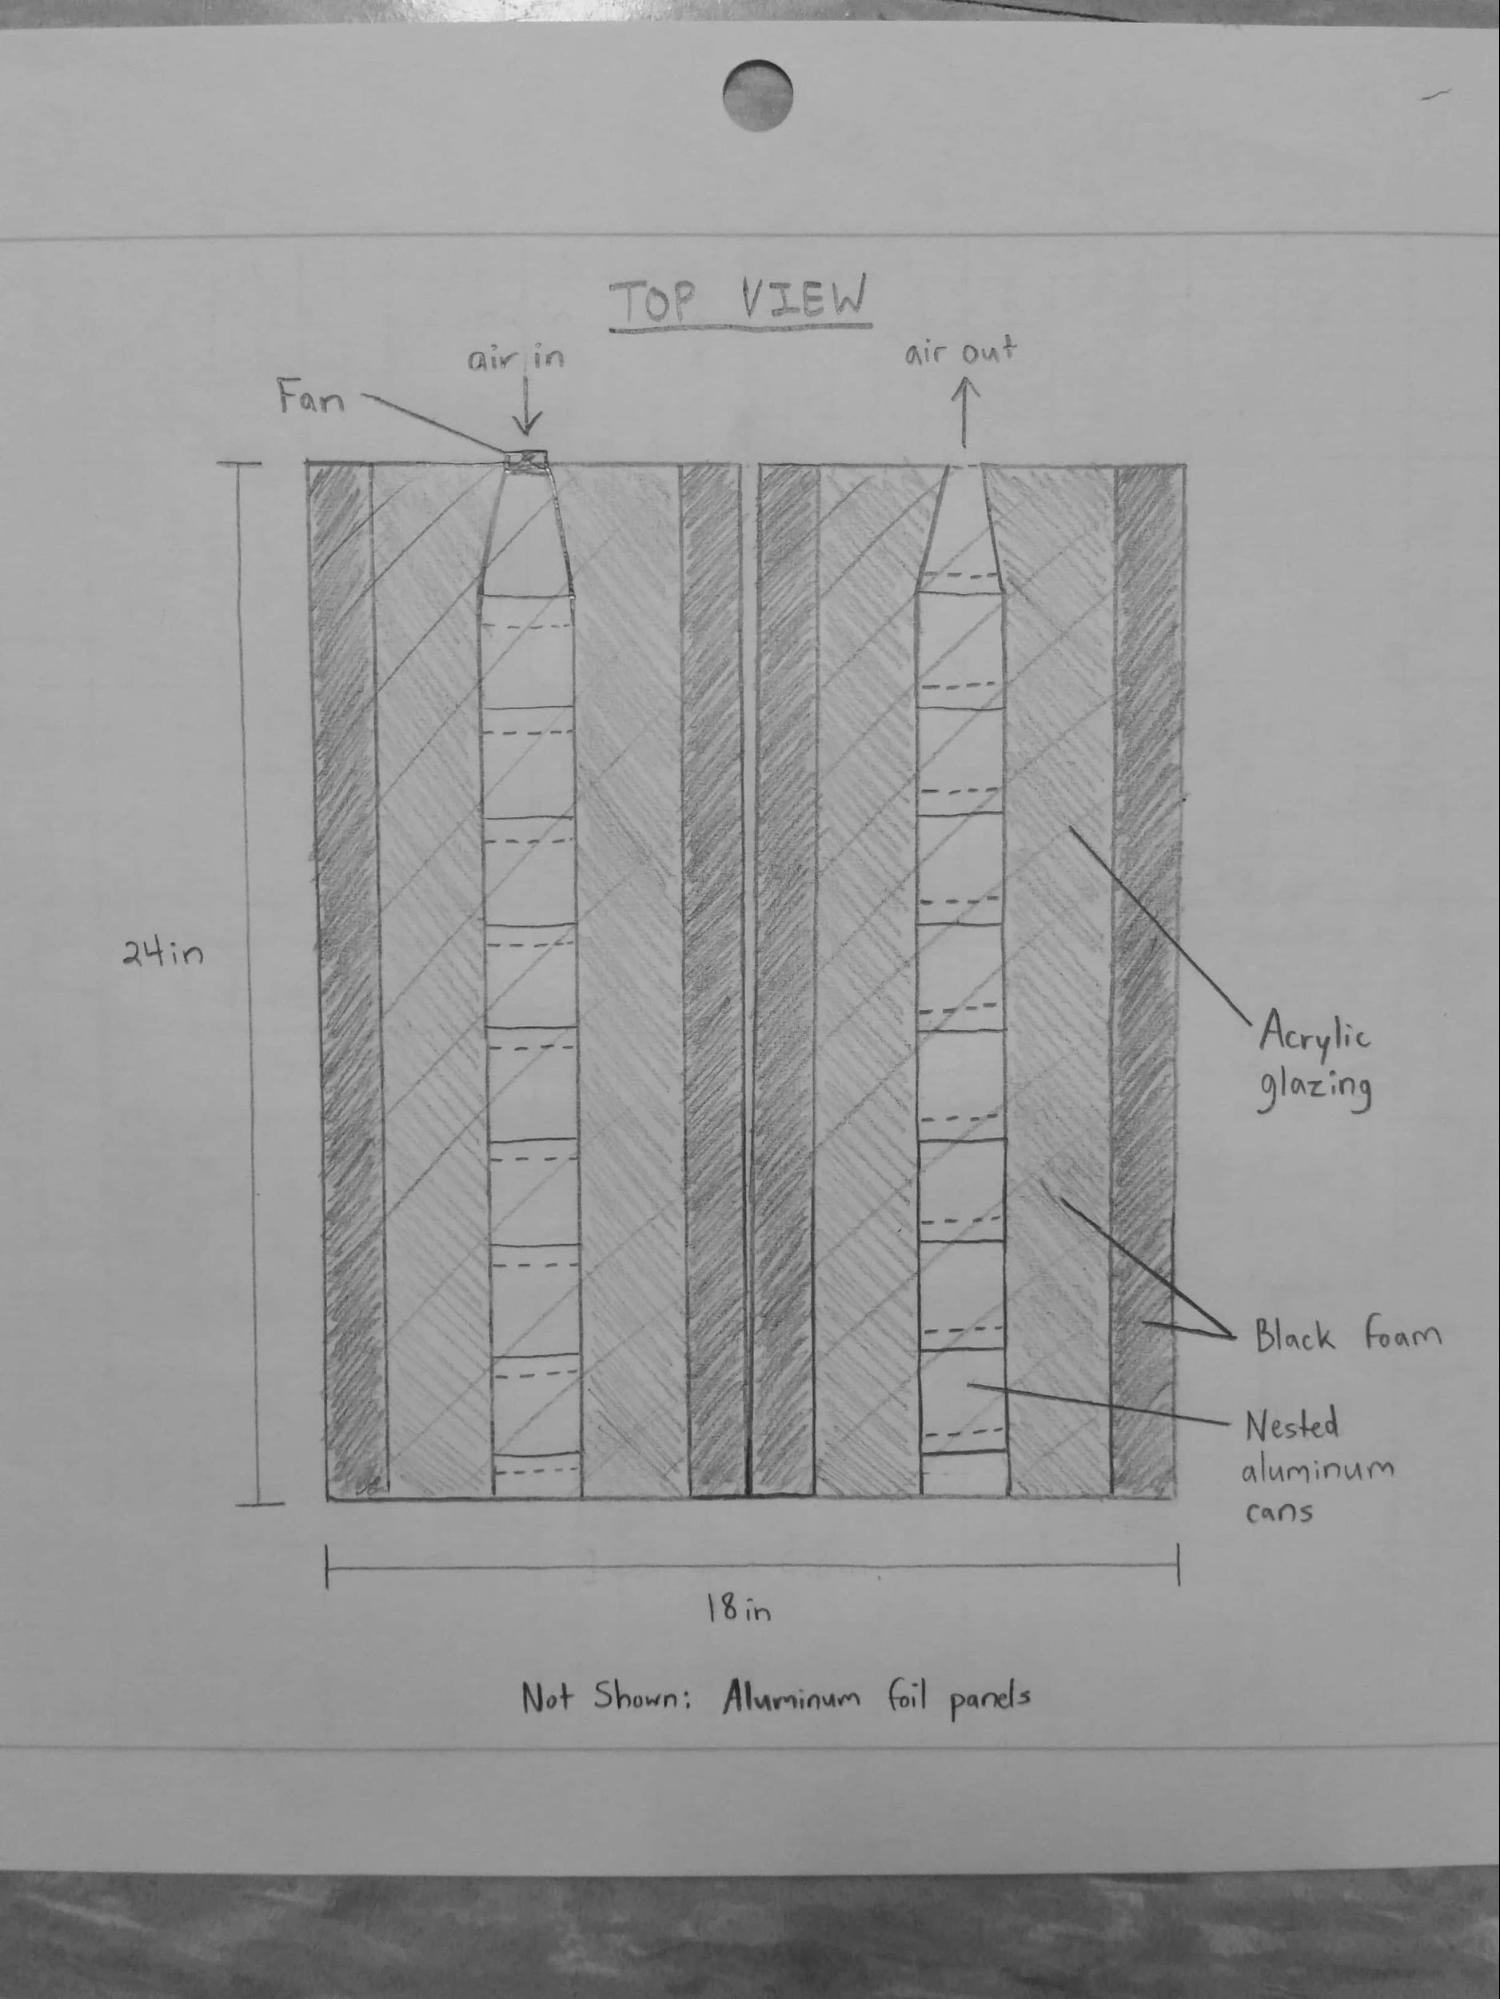 TOP VIEW
air in
air out
Fan
24in
Acrylic
glazing
Black foam
Nested
aluminum
cans
18in
Not Shown: Aluminum foil panels